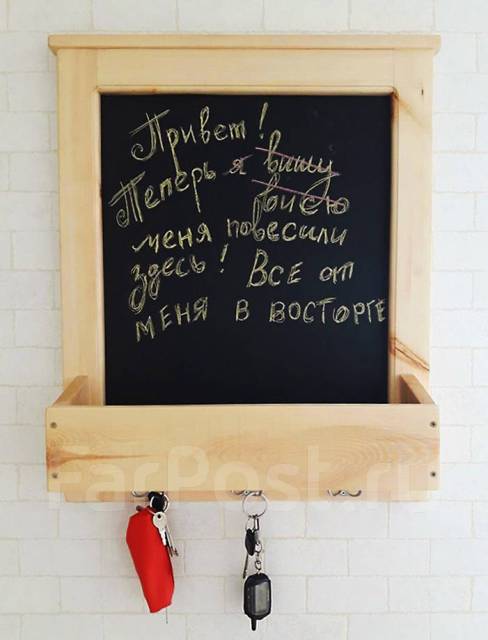 Привет!
Теперь я вишу
висю
меня повесили
здесь! Все от
меня в восторге
FarPost.ru